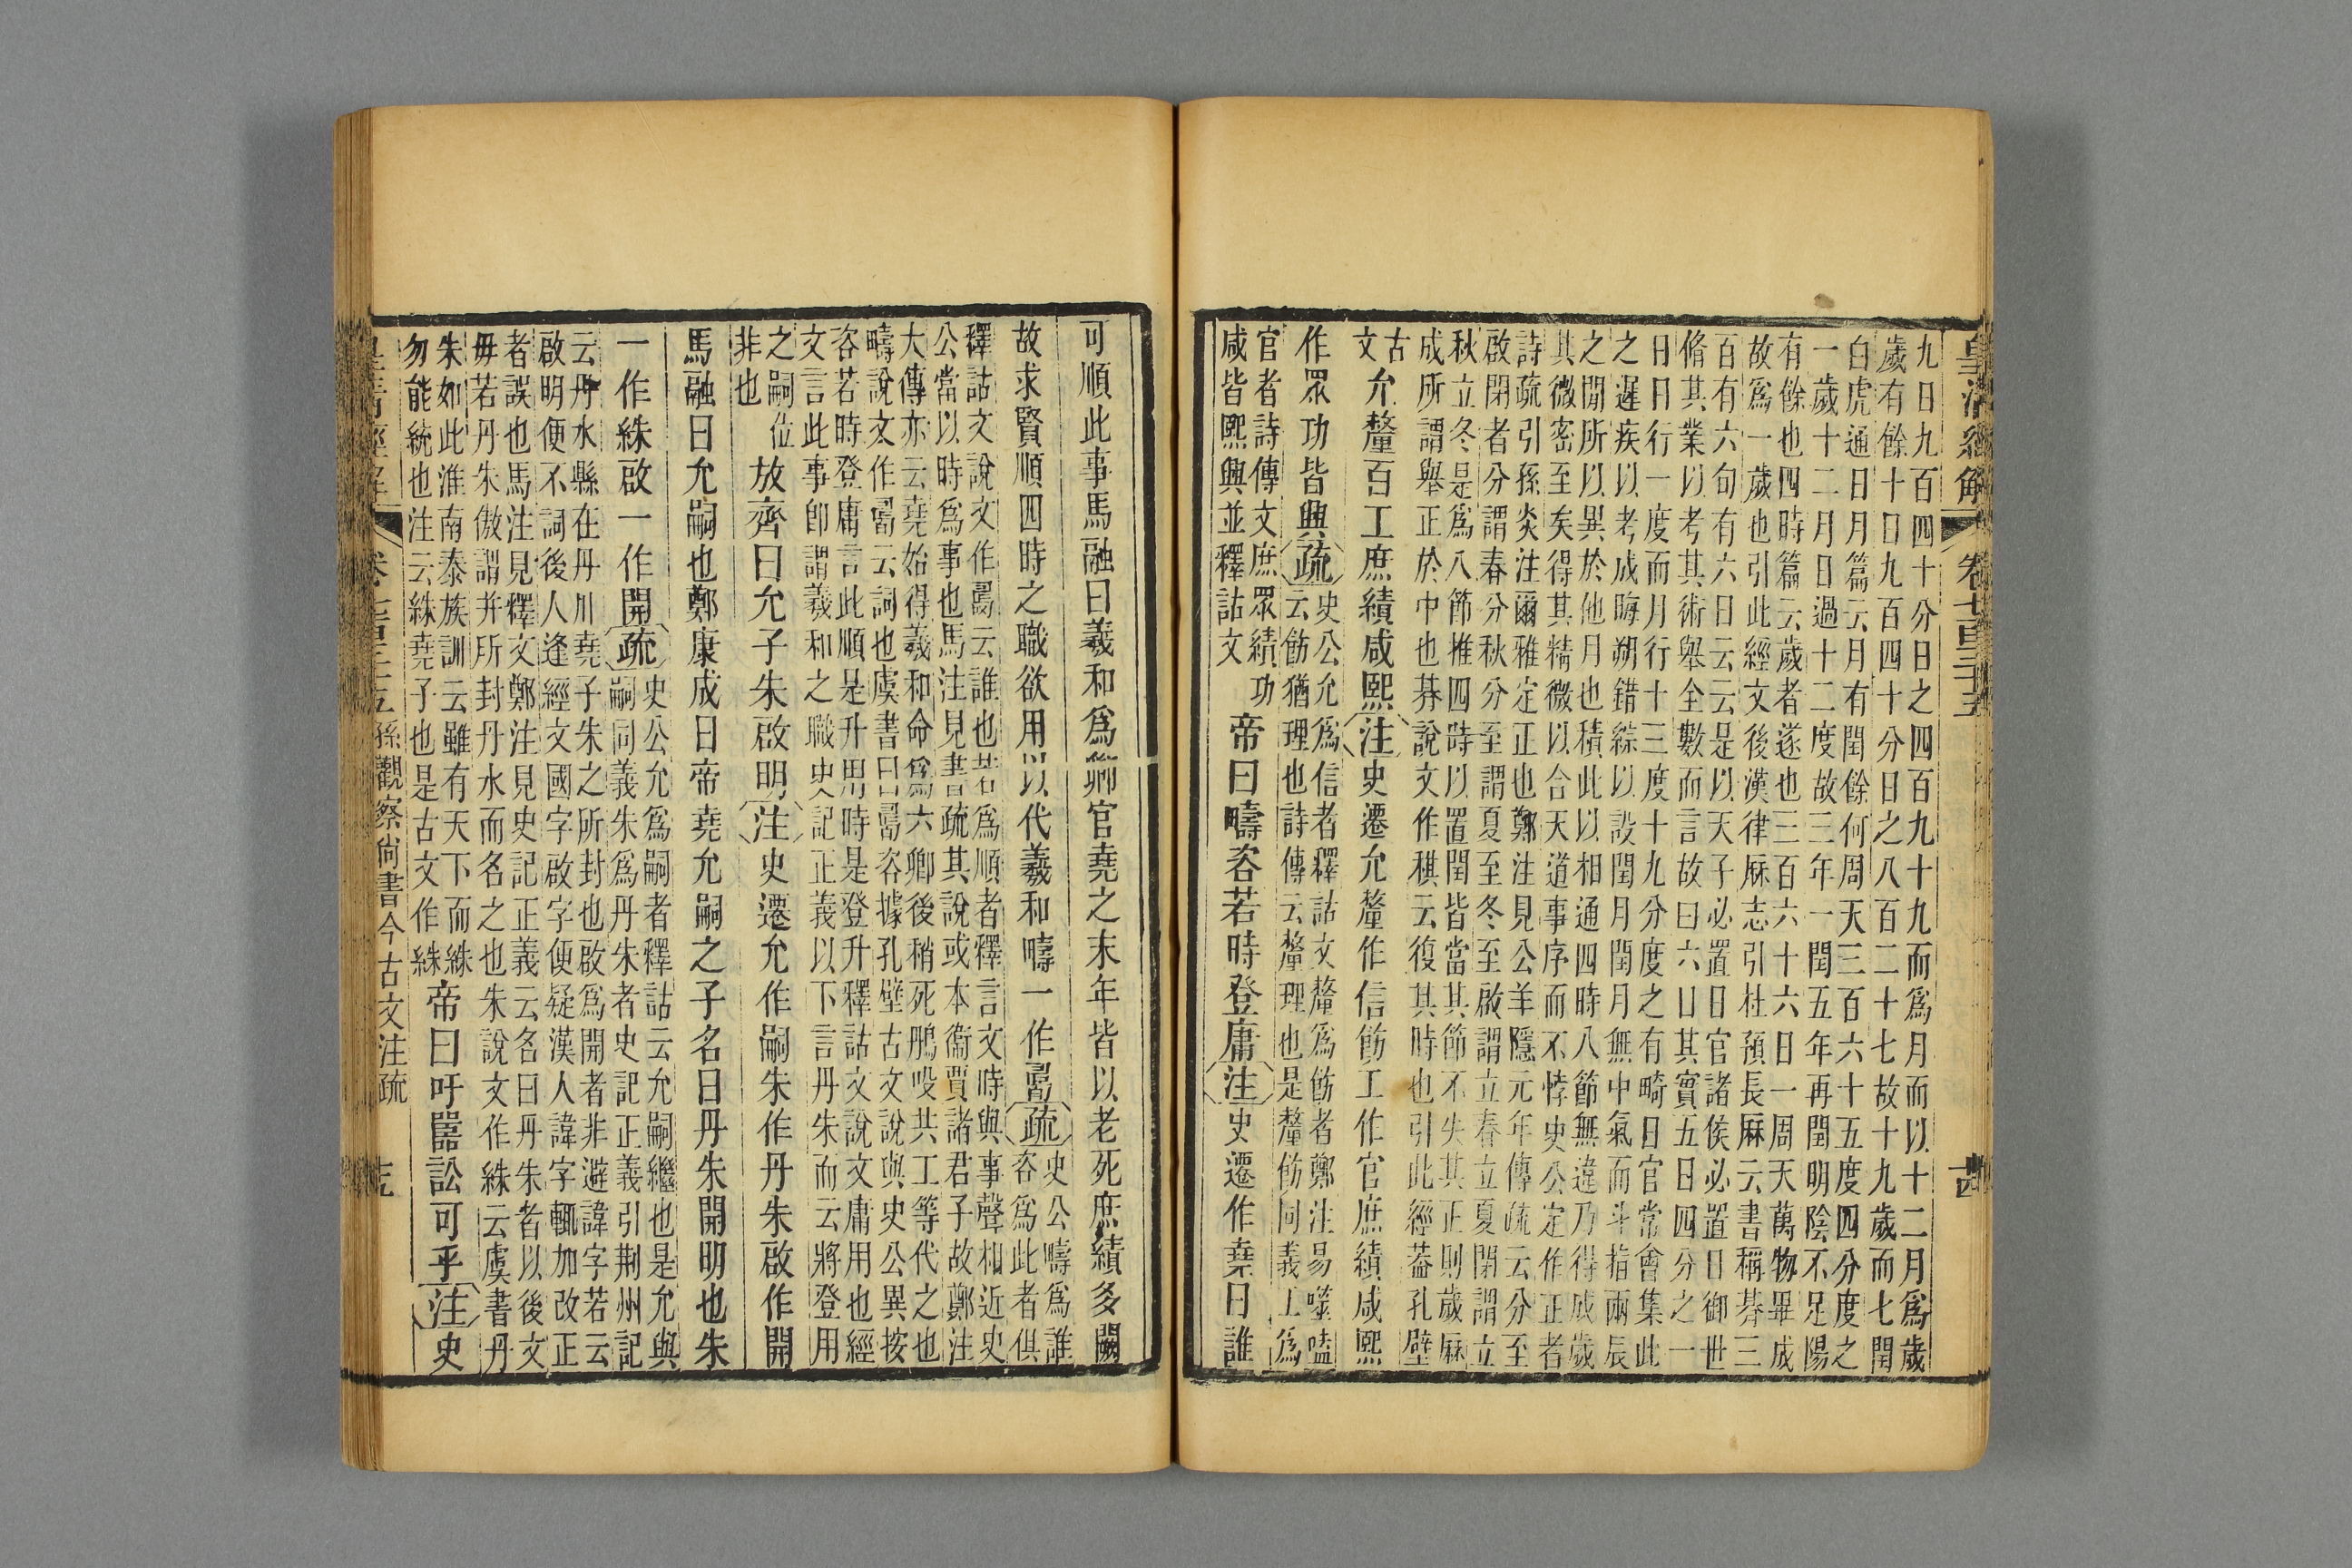 皇清經解
卷七百三十五
九日九百四十分日之四百九十九而爲月而以十二月爲歲
歲有餘十日九百四十分日之八百二十七故十九歲而七閏
白虎通日月篇云月有閏餘何周天三百六十五度四分度之
一歲十二月日過十二度故三年一閏五年再閏明陰不足陽
有餘也四時篇云歲者遂也三百六十六日一周天萬物畢成
故爲一歲也引此經文後漢律厤志引杜預長厤云書稱朞三
百有六旬有六日云云是以天子必置日官諸侯必置日御世
脩其業以考其術舉全數而言故曰六日其實五日四分之一
日日行一度而月行十三度十九分度之有畸日官常會集此
之遲疾以考成晦朔錯綜以設閏月閏月無中氣而斗指兩辰
之閒所以異於他月也積此以相通四時八節無違乃得成歲
其微密至矣得其精微以合天道事序而不悖史公定作正者
詩疏引孫炎注爾雅定正也鄭注見公羊隱元年傳疏云分至
啟閉者分謂春分秋分至謂夏至冬至啟謂立春立夏閉謂立
秋立冬是爲八節推四時以置閏皆當其節不失其正則歲厤
成所謂舉正於中也朞說文作稘云復其時也引此經蓋孔壁
古
文
允釐百工庶績咸熙
注
史遷允釐作信飭工作官庶績咸熙
作眾功皆興
疏
史公允爲信者釋詁文釐爲飭者鄭注易噬嗑
云飭猶理也詩傳云釐理也是釐飭同義工爲
官者詩傳文庶眾績功
咸皆熙興並釋詁文
帝曰疇咨若時登庸
注
史遷作堯曰誰
可順此事馬融曰羲和爲卿官堯之末年皆以老死庶績多闕
故求賢順四時之職欲用以代羲和疇一作𠷎
疏
史公疇爲誰
咨爲此者俱
釋詁文說文作𠷎云誰也若爲順者釋言文時與事聲相近史
公當以時爲事也馬注見書疏其說或本衞賈諸君子故鄭注
大傳亦云堯始得羲和命爲六卿後稍死鵰吺共工等代之也
疇說文作𠷎云詞也虞書曰𠷎咨據孔壁古文說與史公異按
咨若時登庸言此順是升用時是登升釋詁文說文庸用也經
文言此事卽謂羲和之職史記正義以下言丹朱而云將登用
之嗣位
非也
放齊曰允子朱啟明
注
史遷允作嗣朱作丹朱啟作開
馬融曰允嗣也鄭康成曰帝堯允嗣之子名曰丹朱開明也朱
一作絑啟一作開
疏
史公允爲嗣者釋詁云允嗣繼也是允與
嗣同義朱爲丹朱者史記正義引荆州記
云丹水縣在丹川堯子朱之所封也啟爲開者非避諱字若云
啟明便不詞後人逢經文國字啟字便疑漢人諱字輒加改正
者誤也馬注見釋文鄭注見史記正義云名曰丹朱者以後文
毋若丹朱傲謂并所封丹水而名之也朱說文作絑云虞書丹
朱如此淮南泰族訓云雖有天下而絑
勿能統也注云絑堯子也是古文作絑
帝曰吁嚚訟可乎
注
史
孫觀察尚書今古文注疏